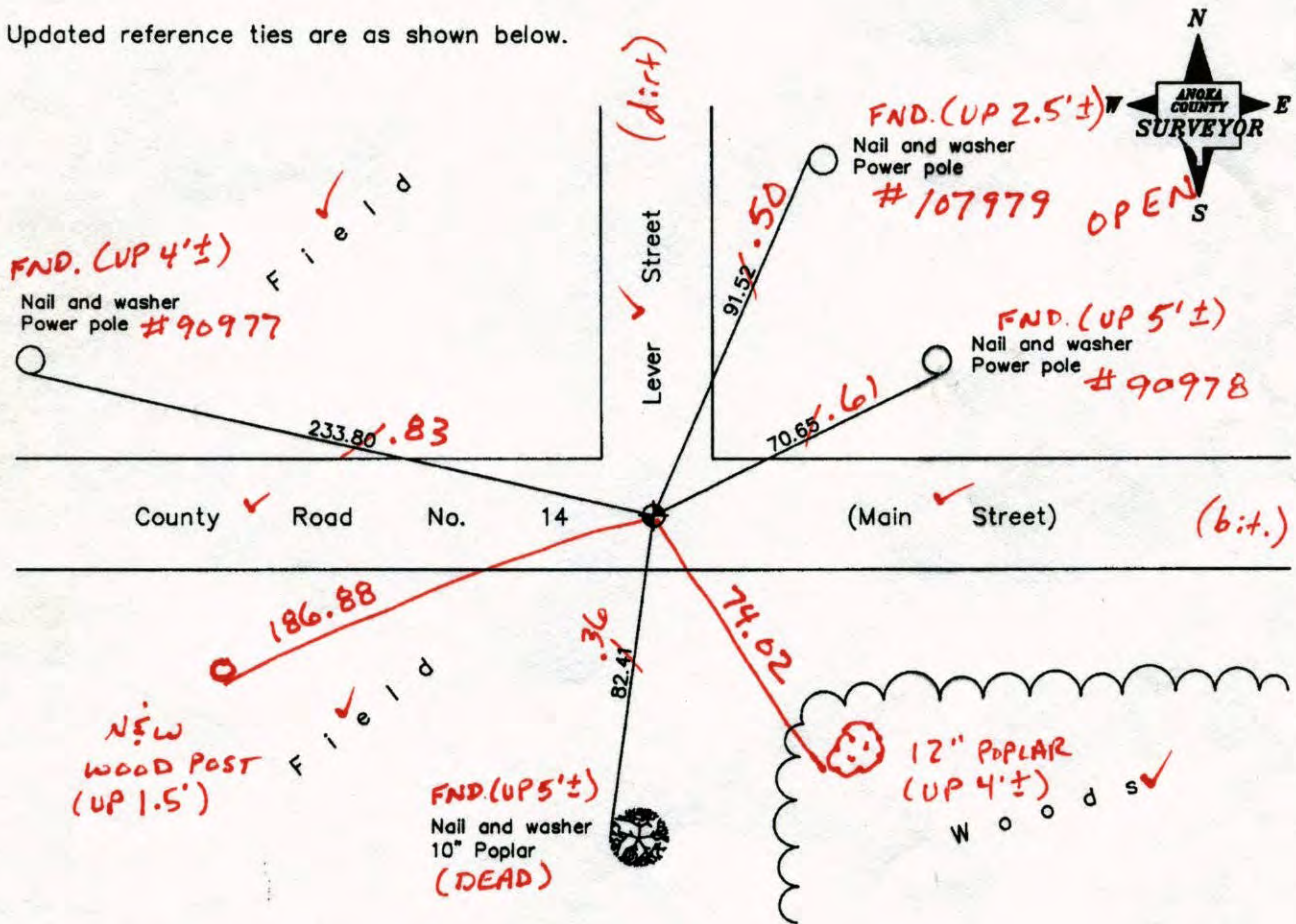 Updated reference ties are as shown below.
N
W
ANOKA
COUNTY
SURVEYOR
E
S
(dirt)
FND. (UP 2.5'±)
Nail and washer
Power pole
# 107979
OPEN
Field
FND. (UP 4'±)
Nail and washer
Power pole # 90977
Lever Street
91.52 .50
FND. (UP 5'±)
Nail and washer
Power pole
# 90978
233.80 .83
70.65 .61
County Road No. 14 (Main Street) (bit.)
186.88
.36
82.41
74.02
Field
N&W
WOOD POST
(UP 1.5')
FND. (UP 5'±)
Nail and washer
10" Poplar
(DEAD)
12" POPLAR
(UP 4'±)
Woods